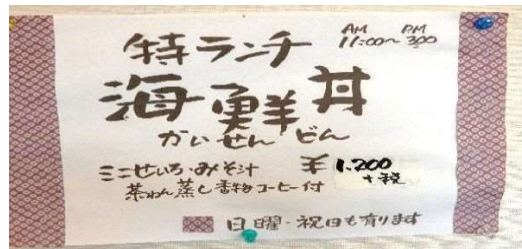 特ランチ AM 11:00~ PM 3:00
海鮮丼
かいせんどん
ミニせいろ・みそ汁 ¥1,200
茶わん蒸し香物コーヒー付 +税
日曜・祝日も有ります